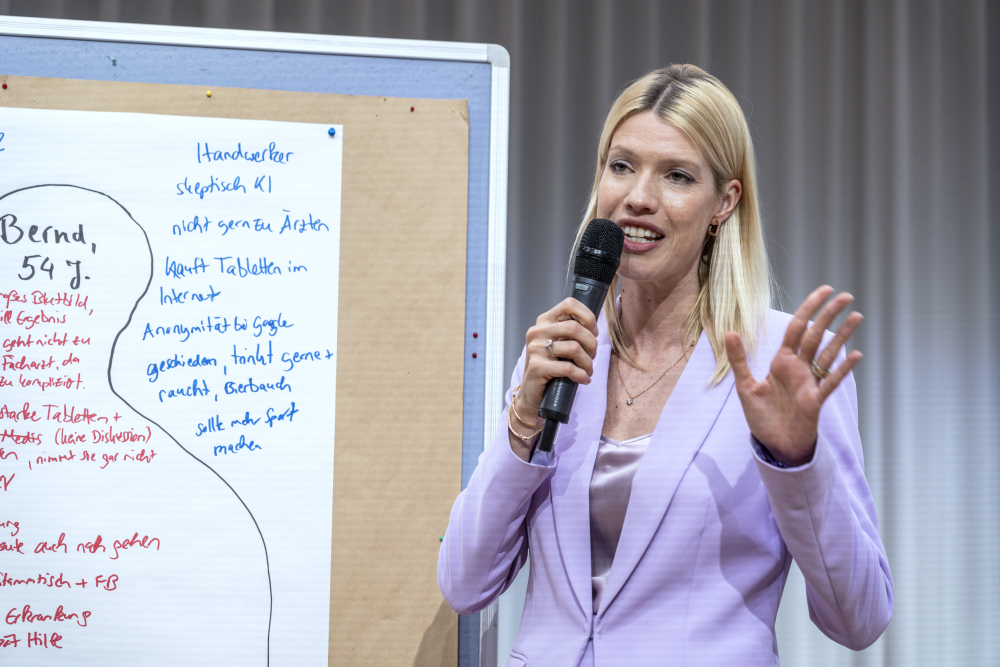 Handwerker
skeptisch KI
nicht gern zu Ärzten
Kauft Tabletten im
Internet
Anonymität bei Google
geschieden, trinkt gerne +
raucht, Bierbauch
sollte mehr Sport
machen
Bernd,
54 J.
oßes Blutbild,
ill Ergebnis
geht nicht zu
Facharzt, da
zu kompliziert.
starke Tabletten +
Medis (keine Diskussion)
en, nimmt sie gar nicht
ung
eute auch noch gehen
tammtisch + FB
Erkrankung
ät Hilfe